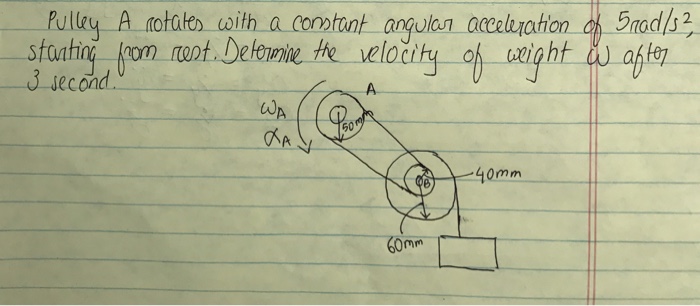 Pulley A rotates with a constant angular acceleration of 5rad/s²,
starting from rest. Determine the velocity of weight W after
3 second.
A
ωA
50mm
αA
40mm
B
60mm